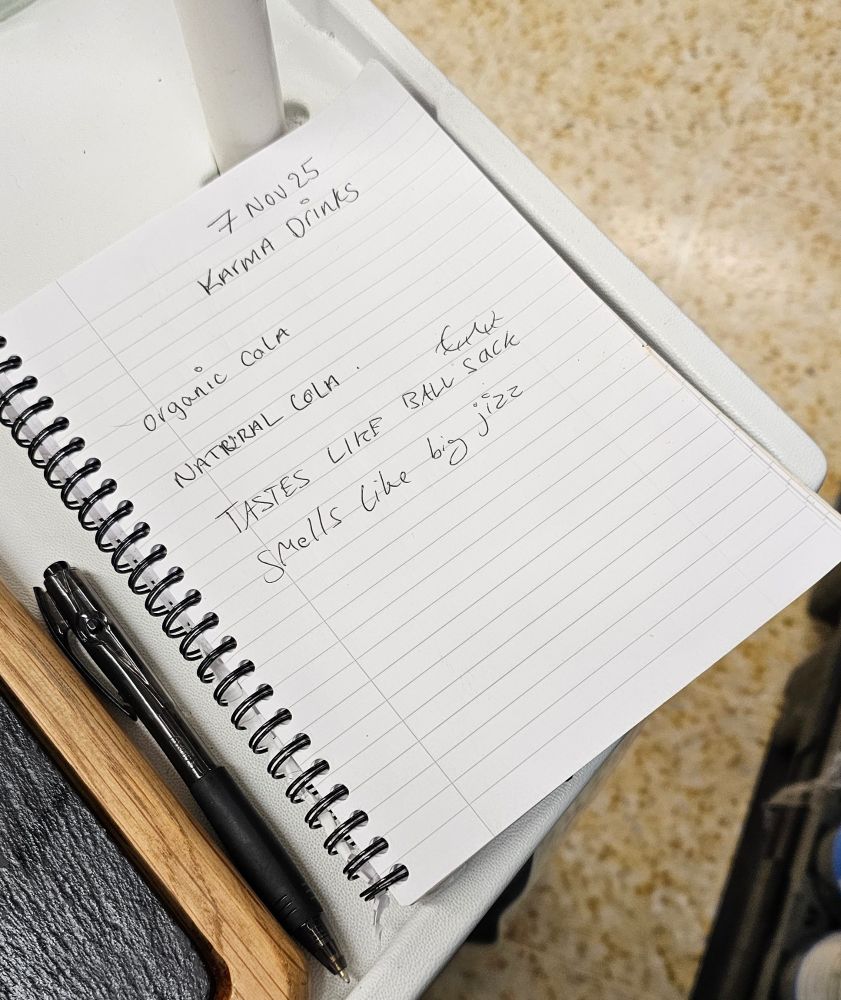 7 Nov 25
Karma Drinks
organic cola
NATRIRAL COLA.
TASTES LIKE BALL SACK
Smells like big jizz